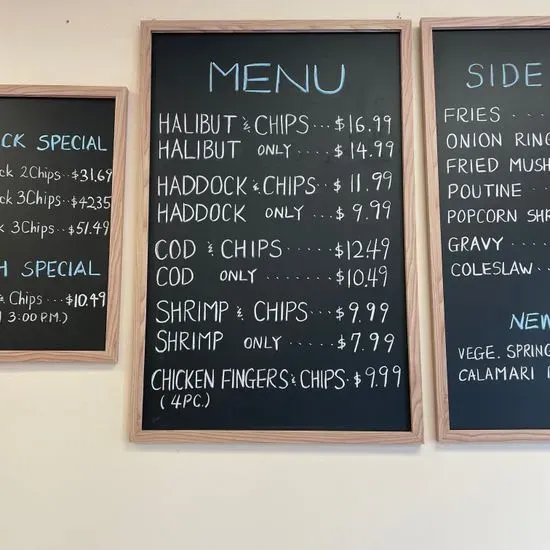 CK SPECIAL
ck 2Chips...$31.69
ck 3Chips...$42.35
k 3Chips...$51.49
H SPECIAL
& Chips...$10.49
3:00 P.M.)
MENU
HALIBUT & CHIPS...$16.99
HALIBUT ONLY....$14.99
HADDOCK & CHIPS...$11.99
HADDOCK ONLY....$9.99
COD & CHIPS......$12.49
COD ONLY.....$10.49
SHRIMP & CHIPS...$9.99
SHRIMP ONLY....$7.99
CHICKEN FINGERS & CHIPS.$9.99
(4PC.)
SIDE
FRIES...
ONION RING
FRIED MUSH
POUTINE...
POPCORN SHR
GRAVY....
COLESLAW..
NEW
VEGE. SPRING
CALAMARI